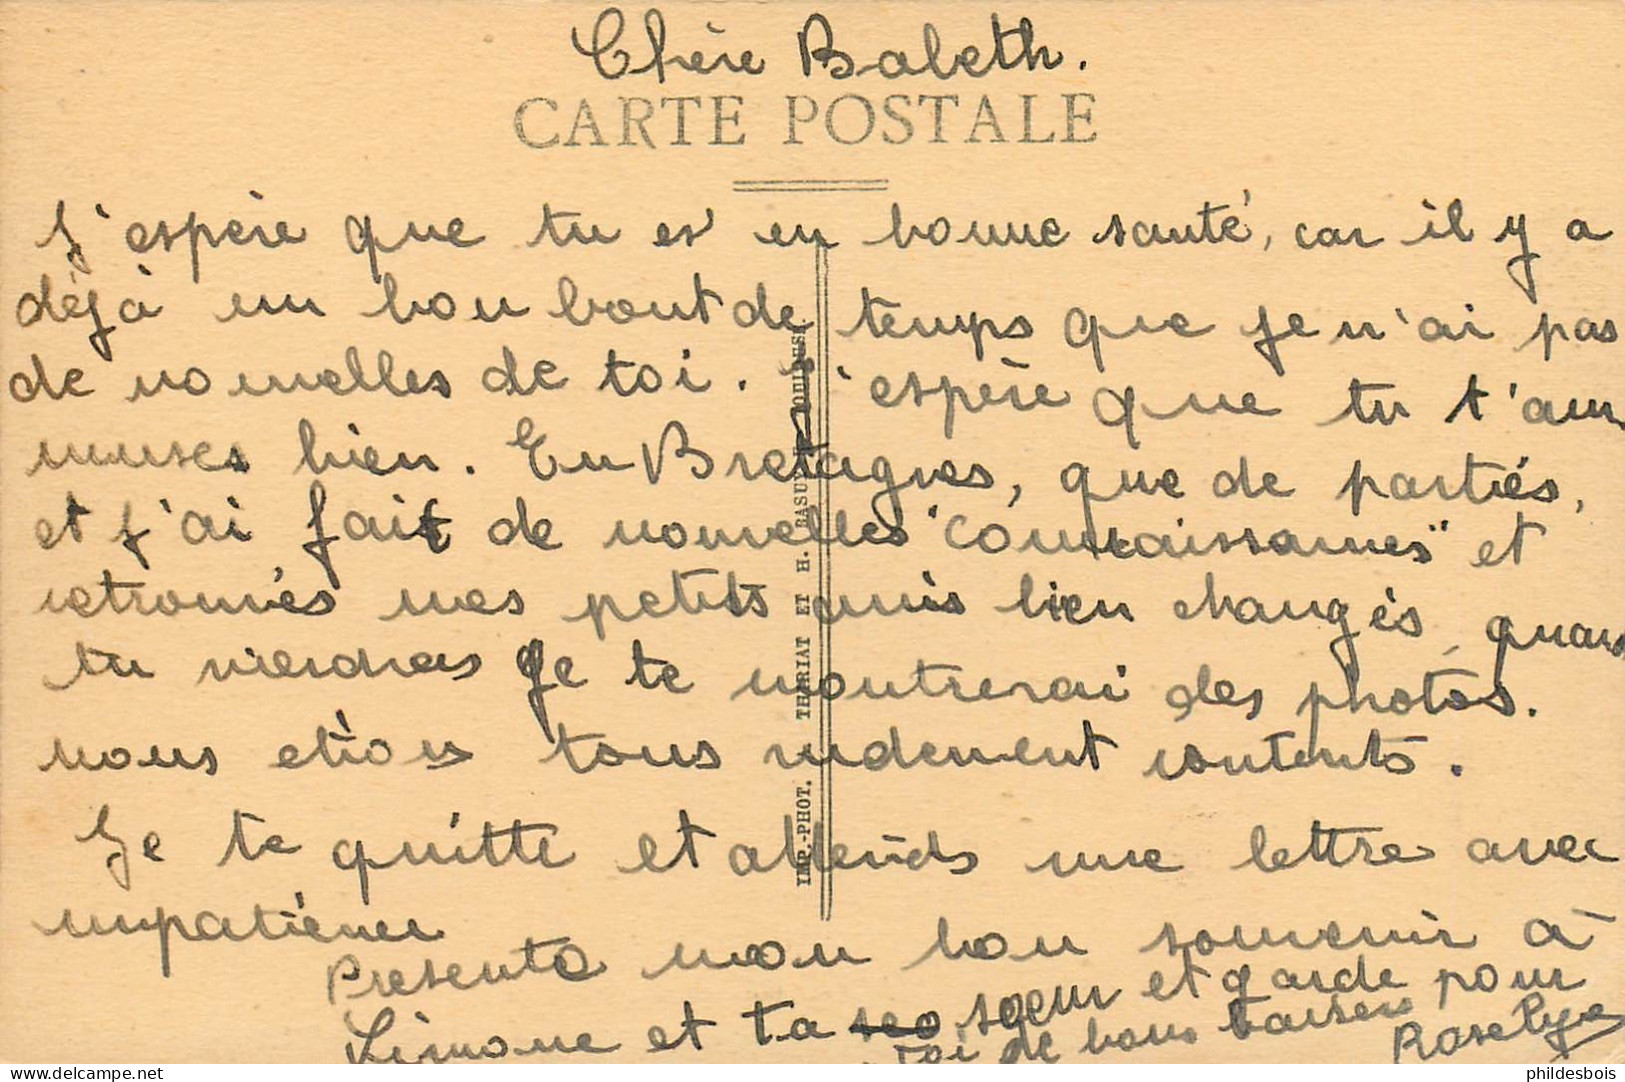 Chère Babeth.
CARTE POSTALE
J'espère que tu es en bonne santé, car il y a
déjà un bon bout de temps que je n'ai pas
de nouvelles de toi. J'espère que tu t'am
muses bien. En Bretagnes, que de partiés,
et j'ai fait de nouvelles "connaissances" et
retrouvés mes petits amis bien changés, quand
tu viendras je te montrerai des photos.
nous etions tous rudement contents.
Je te quitte et attends une lettre avec
impatience
Presente mon bon souvenir à
Simone et ta soeur et garde pour
toi de bons baisers
Roselyne
IMP.-PHOT. THIRIAT ET H. BASUYAU TOULOUSE
delcampe.net
phildesbois